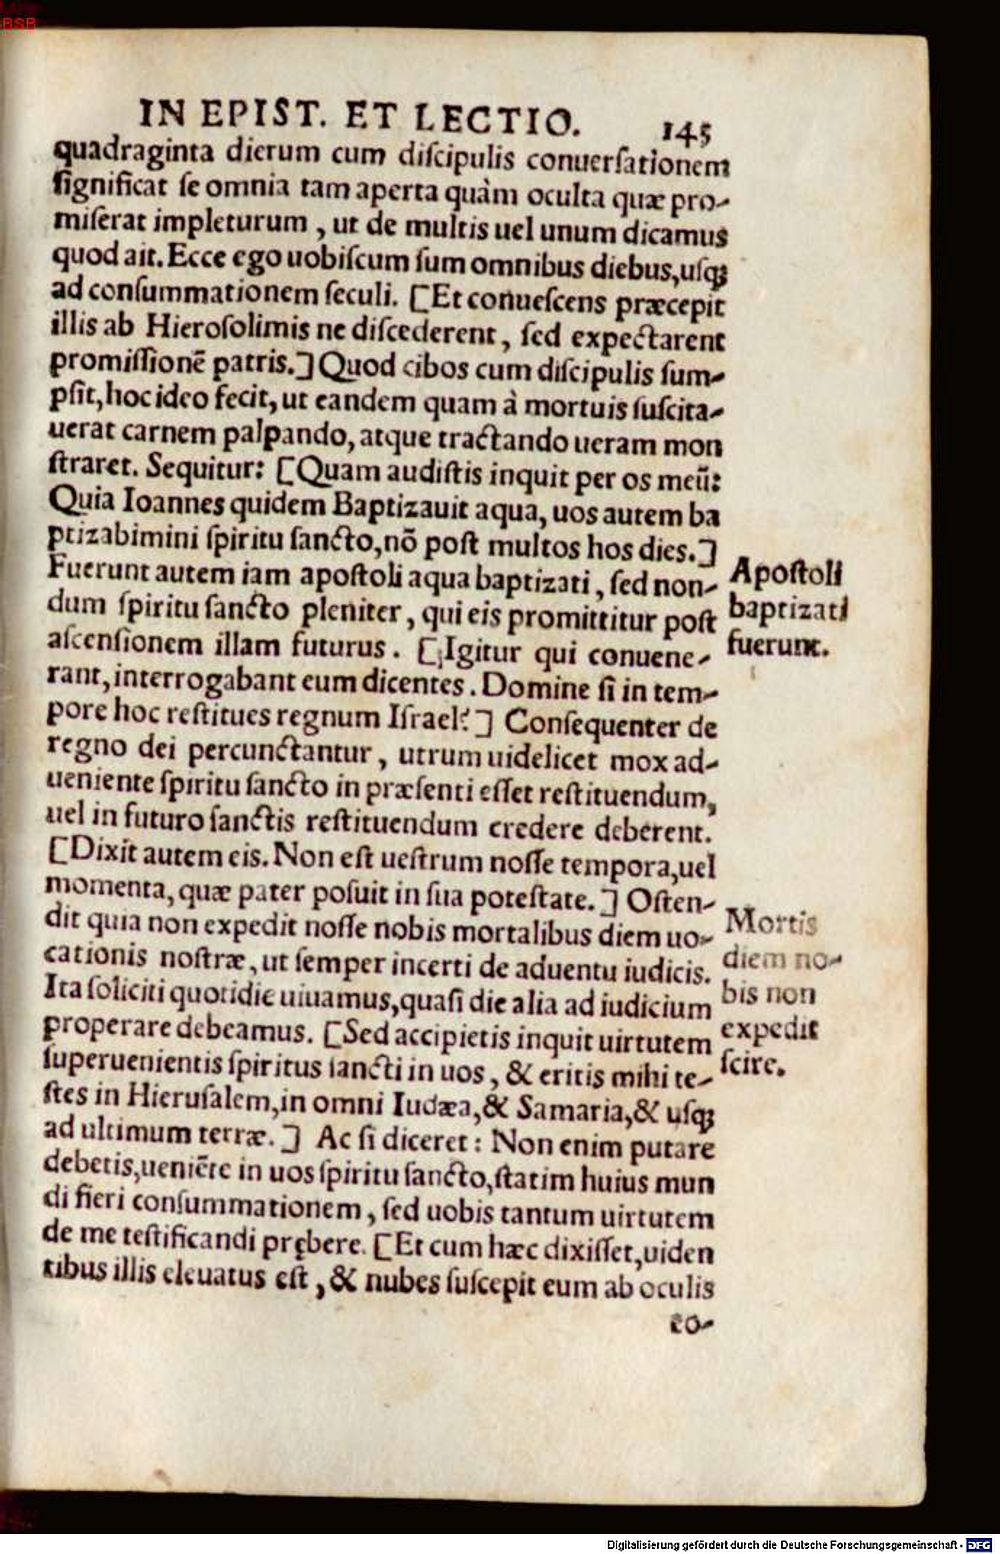 BSB
IN EPIST. ET LECTIO. 145
quadraginta dierum cum diſcipulis conuerſationem
ſignificat ſe omnia tam aperta quàm oculta quæ pro-
miſerat impleturum, ut de multis uel unum dicamus
quod ait. Ecce ego uobiſcum ſum omnibus diebus, uſqꝫ
ad conſummationem ſeculi. [Et conueſcens præcepit
illis ab Hieroſolimis ne diſcederent, ſed expectarent
promiſſionē patris.] Quod cibos cum diſcipulis ſum-
pſit, hoc ideo fecit, ut eandem quam à mortuis ſuſcita-
uerat carnem palpando, atque tractando ueram mon
ſtraret. Sequitur: [Quam audiſtis inquit per os meū:
Quia Ioannes quidem Baptizauit aqua, uos autem ba
ptizabimini ſpiritu ſancto, nō poſt multos hos dies.]
Fuerunt autem iam apoſtoli aqua baptizati, ſed non-
dum ſpiritu ſancto pleniter, qui eis promittitur poſt
aſcenſionem illam futurus. [Igitur qui conuene-
rant, interrogabant eum dicentes. Domine ſi in tem-
pore hoc reſtitues regnum Iſrael?] Conſequenter de
regno dei percunctantur, utrum uidelicet mox ad-
ueniente ſpiritu ſancto in præſenti eſſet reſtituendum,
uel in futuro ſanctis reſtituendum credere deberent.
[Dixit autem eis. Non eſt ueſtrum noſſe tempora, uel
momenta, quæ pater poſuit in ſua poteſtate.] Oſten-
dit quia non expedit noſſe nobis mortalibus diem uo-
cationis noſtræ, ut ſemper incerti de aduentu iudicis.
Ita ſoliciti quotidie uiuamus, quaſi die alia ad iudicium
properare debeamus. [Sed accipietis inquit uirtutem
ſuperuenientis ſpiritus ſancti in uos, & eritis mihi te-
ſtes in Hieruſalem, in omni Iudæa, & Samaria, & uſqꝫ
ad ultimum terræ.] Ac ſi diceret: Non enim putare
debetis, ueniēte in uos ſpiritu ſancto, ſtatim huius mun
di fieri conſummationem, ſed uobis tantum uirtutem
de me teſtificandi prębere. [Et cum hæc dixiſſet, uiden
tibus illis eleuatus eſt, & nubes ſuſcepit eum ab oculis
eo-
Apoſtoli
baptizati
fuerunt.
Mortis
diem no-
bis non
expedit
ſcire.
Digitalisierung gefördert durch die Deutsche Forschungsgemeinschaft - DFG